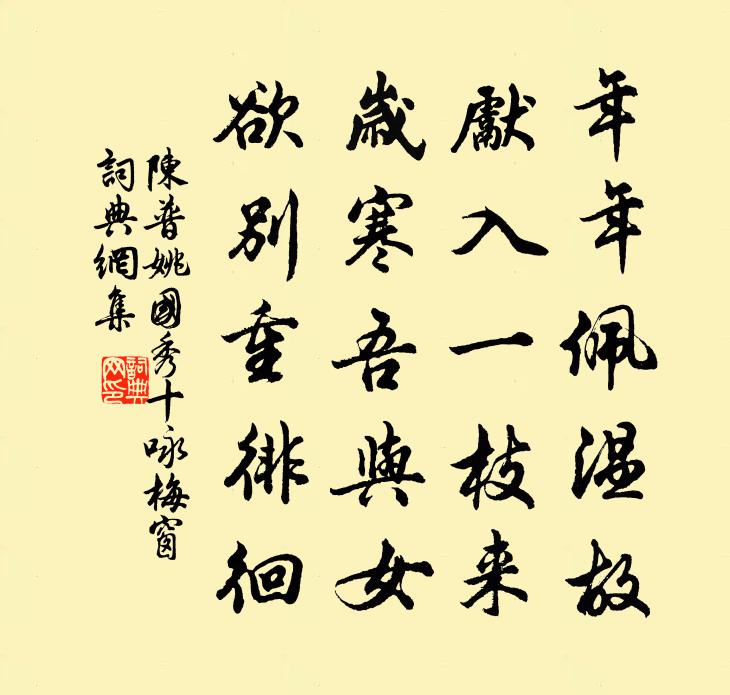 年年佩温故
獻入一枝来
歲寒吾與女
欲别重徘徊
陳普姚國秀十咏梅窗
詞典網集
詞典网印